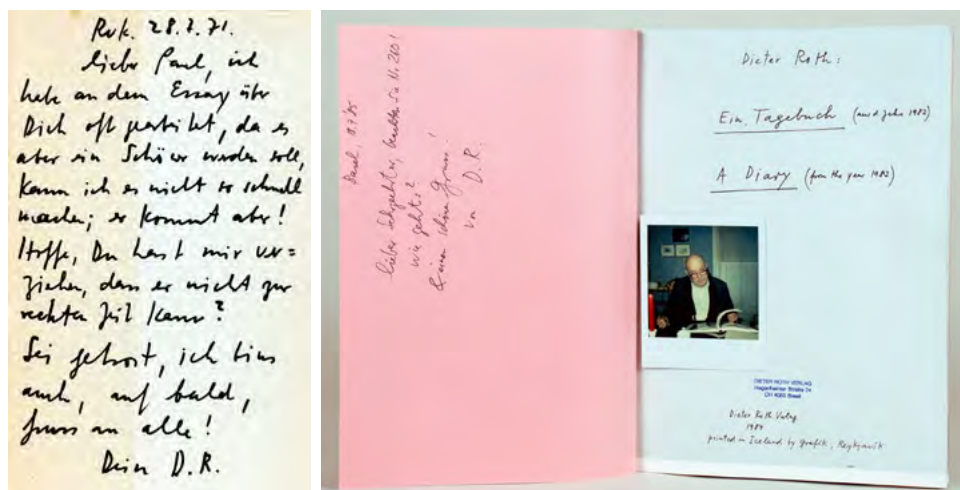 Rvk. 28.7.71.
lieber Paul, ich
habe an dem Essay über
Dich oft gearbeitet, da es
aber ein Schöner werden soll,
kann ich es nicht so schnell
machen; er kommt aber!
Hoffe, Du hast mir ver=
ziehen, dass er nicht zur
rechten Zeit kam?
Sei getrost, ich bins
auch, auf bald,
Gruss an alle!
Dein D.R.
Basel,
lieber
wie geht's?
& einen schönen Gruss!
von D.R.
Dieter Roth:
Ein Tagebuch (aus d. Jahre 1982)
A Diary (from the year 1982)
DIETER ROTH VERLAG
Hegenheimer Straße
CH 4055 Basel
Dieter Roth Verlag
1984
printed in Iceland by Grafík, Reykjavík